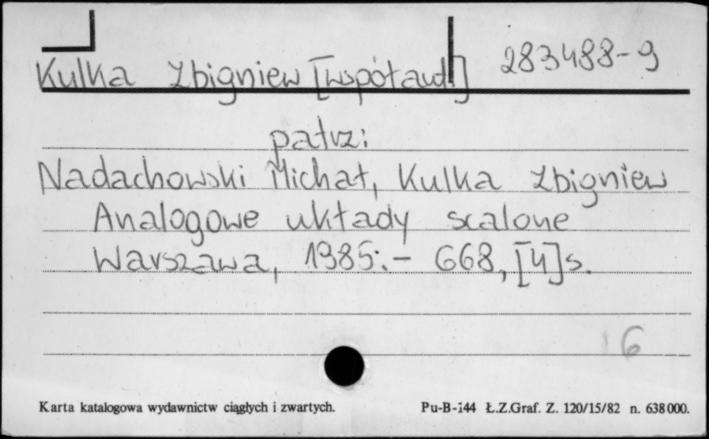 Kulka Zbigniew [współaut.] 283488-9
patrz:
Nadachowski Michał, Kulka Zbigniew
Analogowe układy scalone
Warszawa, 1985.- 668, [4] s.
6
Karta katalogowa wydawnictw ciągłych i zwartych. Pu-B-144 Ł.Z.Graf. Z. 120/15/82 n. 638000.